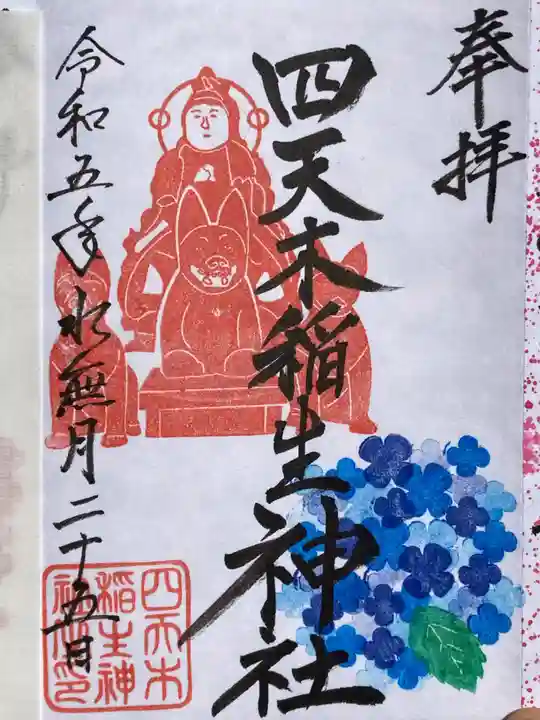 奉拝
四天木稲生神社
令和五年水無月二十五日
四天木
稲生神
社之印